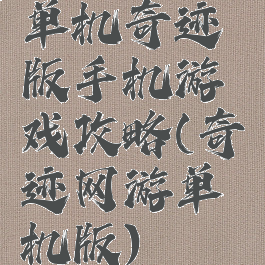 单机奇迹
版手机游
戏攻略(奇
迹网游单
机版)